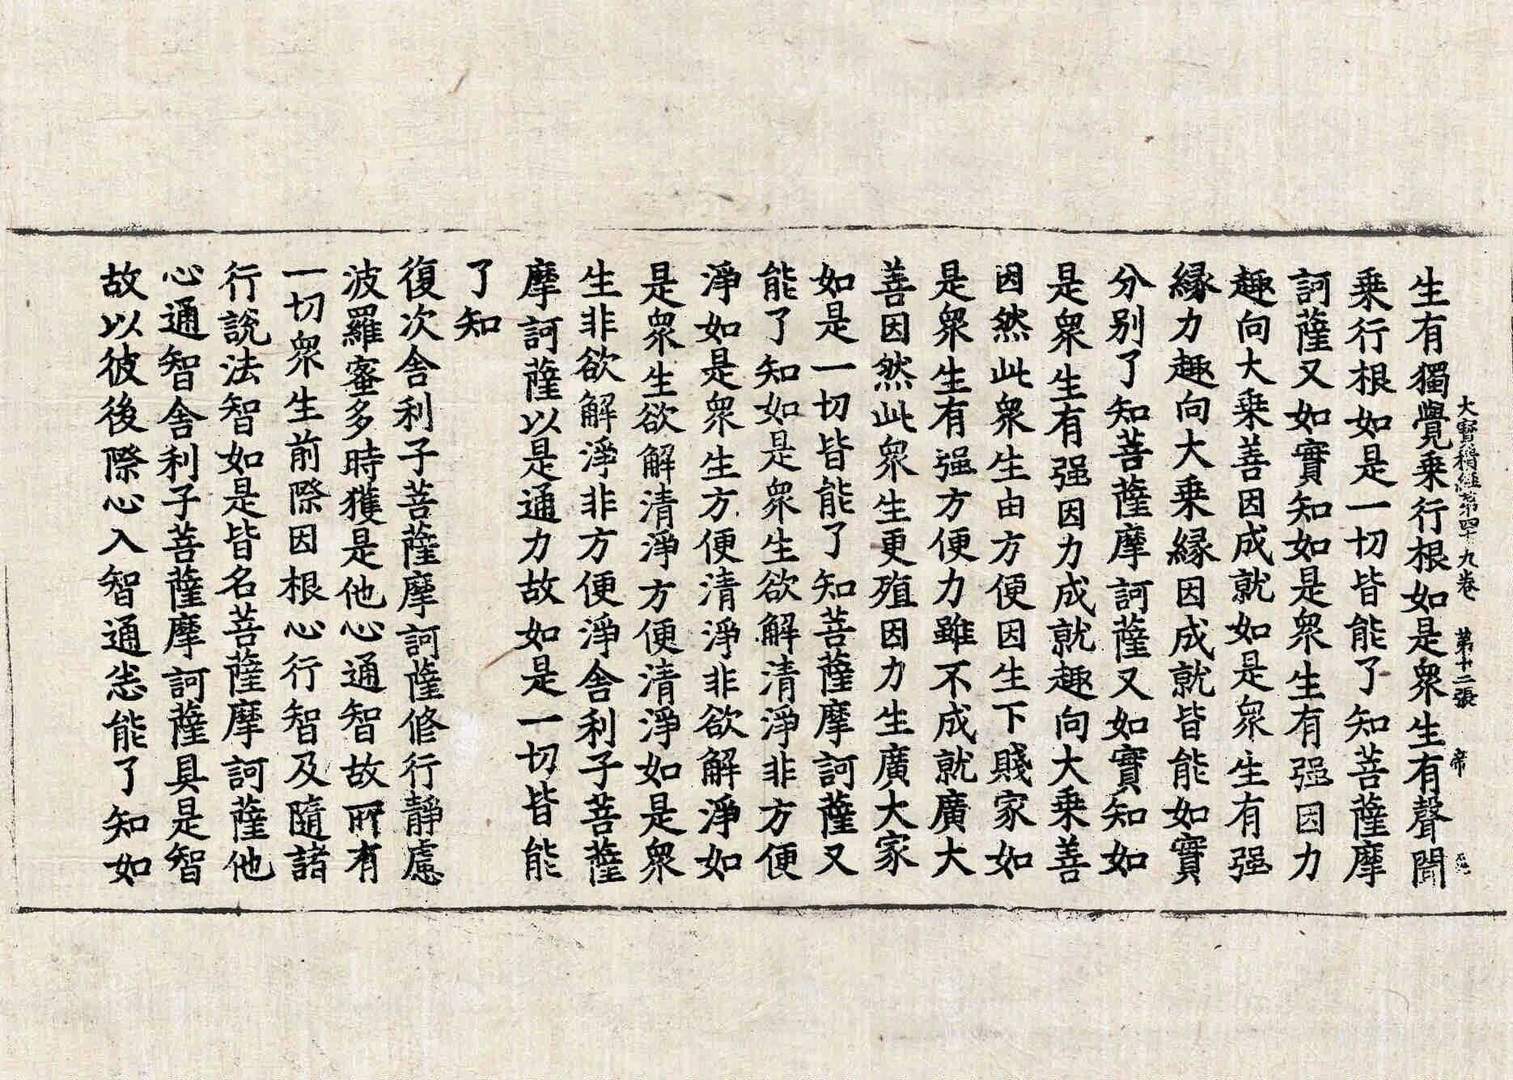 大寳積經第四十九卷　第十二張　帝
生有獨覺乘行根如是衆生有聲聞
乘行根如是一切皆能了知菩薩摩
訶薩又如實知如是衆生有强因力
趣向大乘善因成就如是衆生有强
縁力趣向大乘縁因成就皆能如實
分别了知菩薩摩訶薩又如實知如
是衆生有强因力成就趣向大乘善
因然此衆生由方便因生下賤家如
是衆生有强方便力雖不成就廣大
善因然此衆生更殖因力生廣大家
如是一切皆能了知菩薩摩訶薩又
能了知如是衆生欲解清淨非方便
淨如是衆生方便清淨非欲解淨如
是衆生欲解清淨方便清淨如是衆
生非欲解淨非方便淨舍利子菩薩
摩訶薩以是通力故如是一切皆能
了知
復次舍利子菩薩摩訶薩修行靜慮
波羅蜜多時獲是他心通智故所有
一切衆生前際因根心行智及隨諸
行説法智如是皆名菩薩摩訶薩他
心通智舍利子菩薩摩訶薩具是智
故以彼後際心入智通悉能了知如